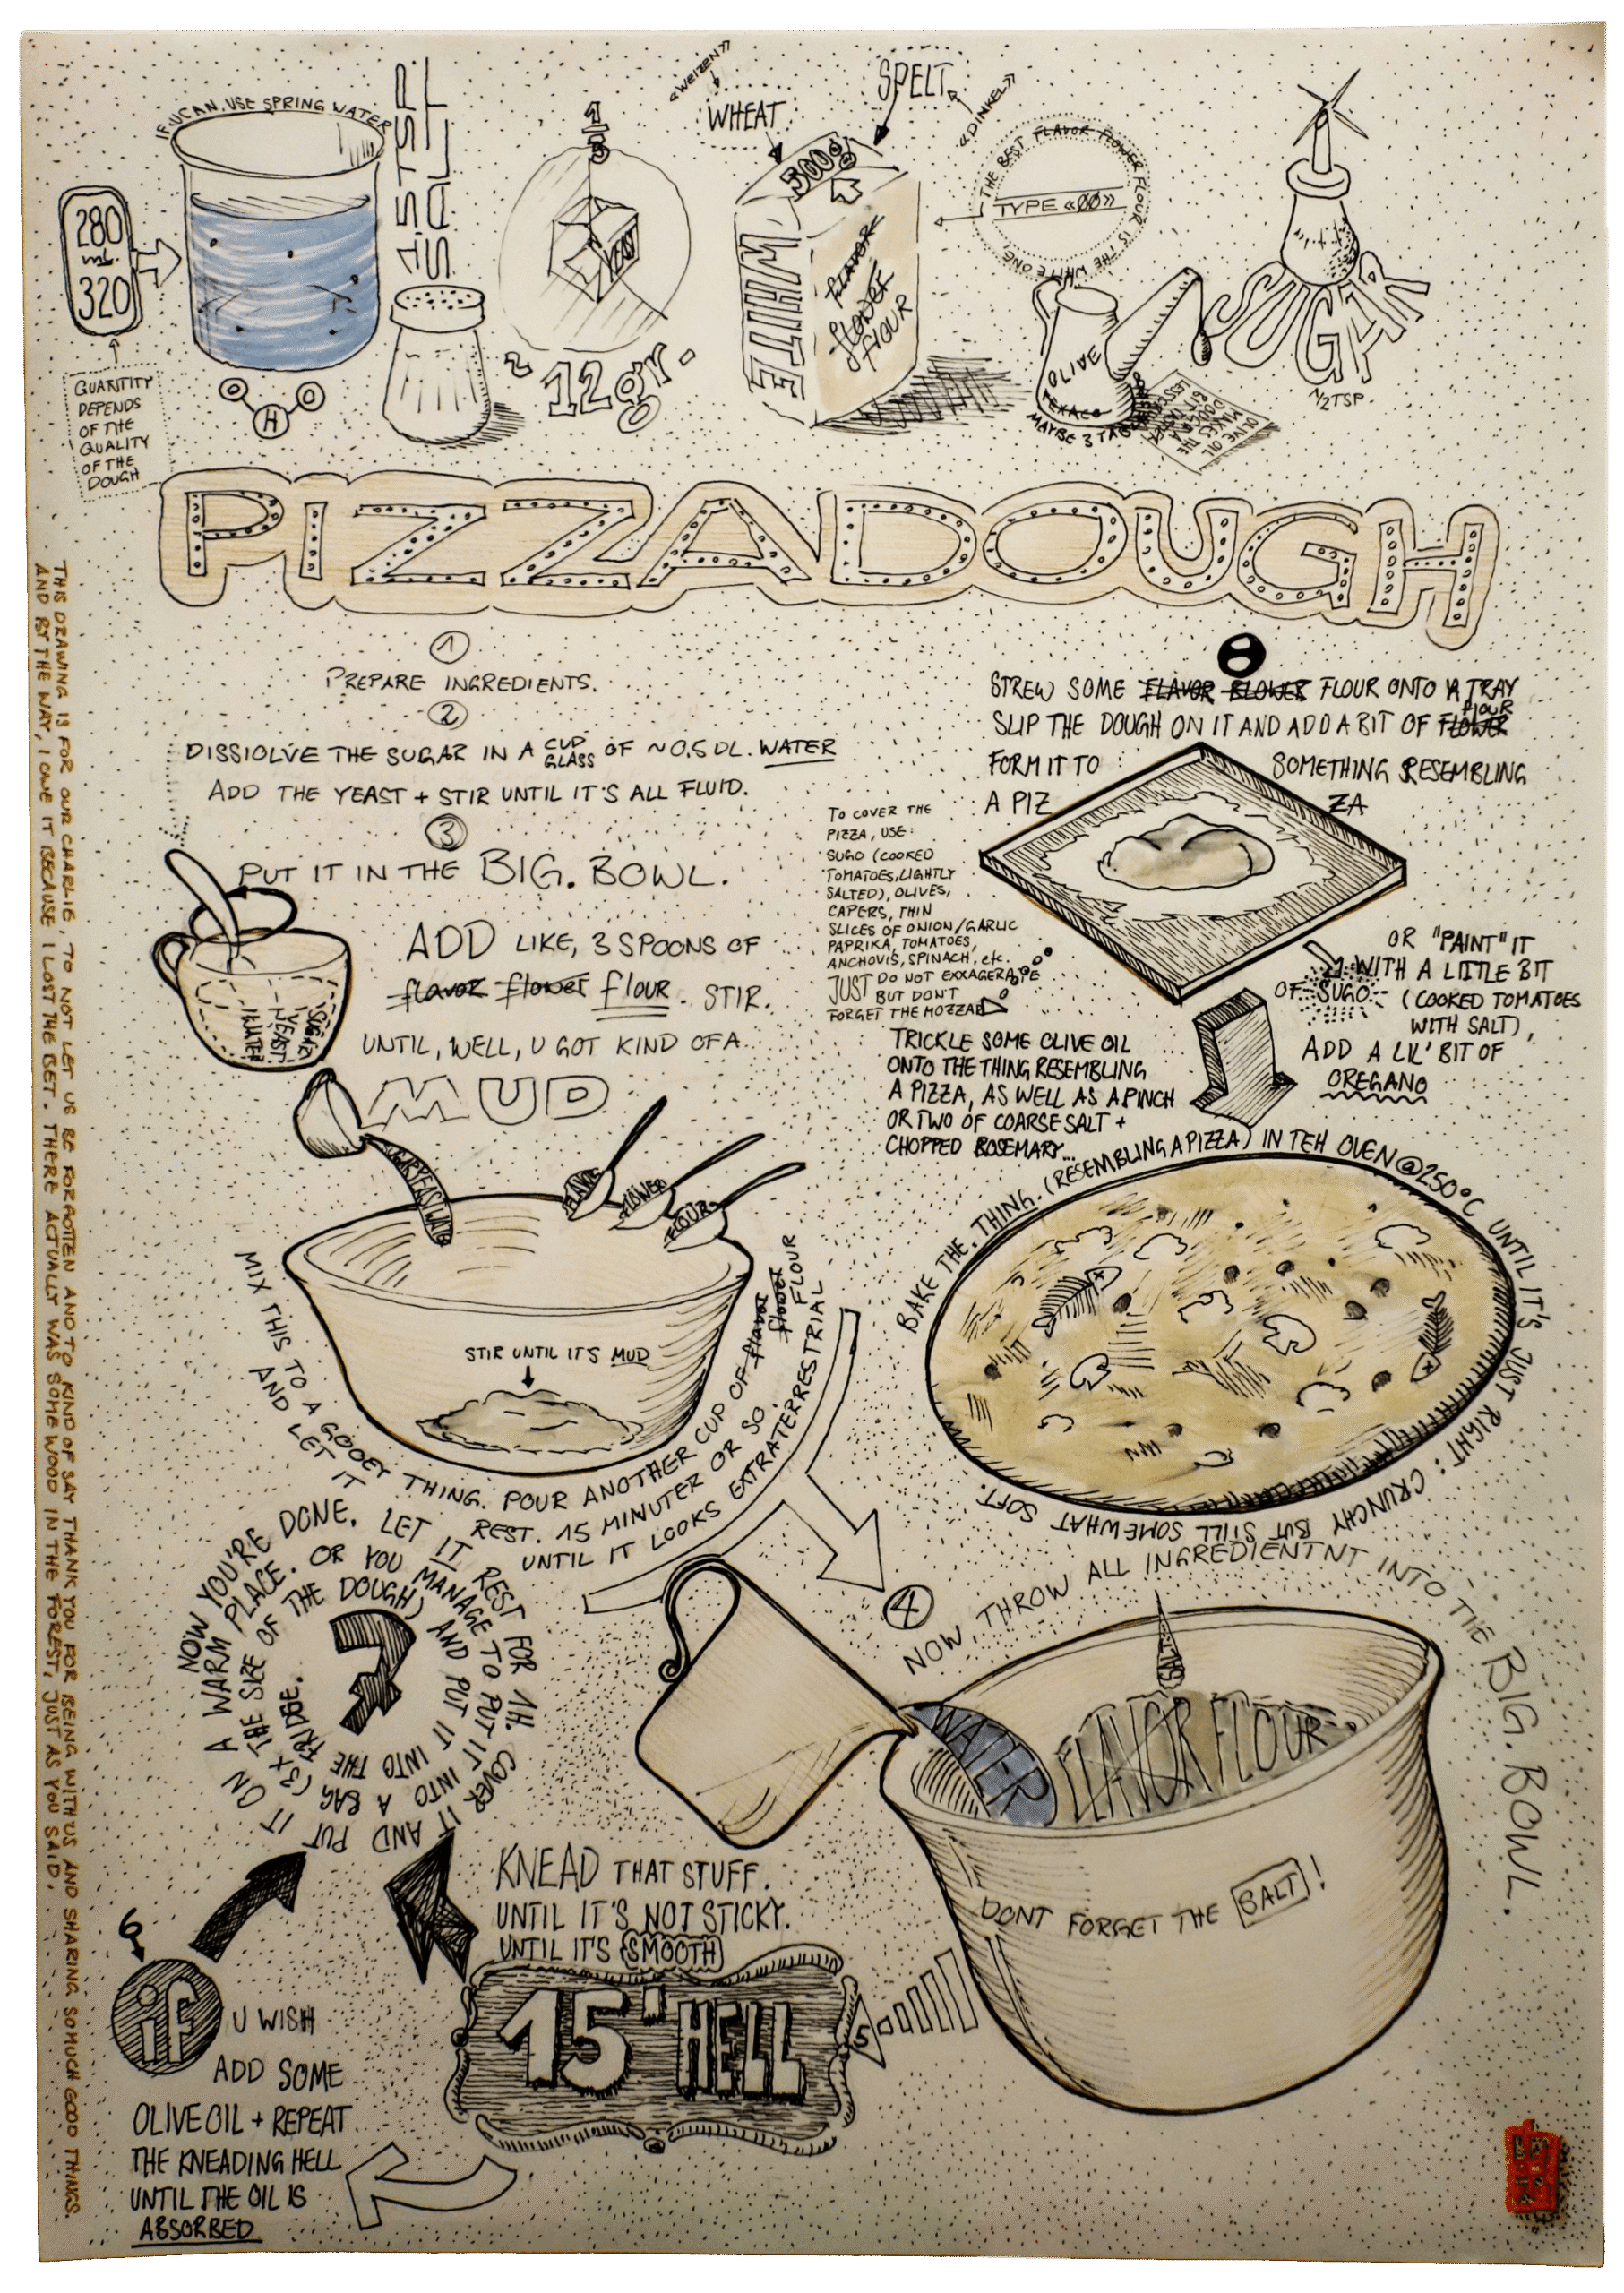 IF U CAN, USE SPRING WATER
280
ml.
320
QUANTITY
DEPENDS
OF THE
QUALITY
OF THE
DOUGH
O
H
O
1.5 TSP.
SALT
1/3
~ 12gr.
«WEIZEN»
WHEAT
SPELT
«DINKEL»
500g
WHITE
FLAVOR
FLOWER
FLOUR
THE BEST FLAVOR FLOWER FLOUR IS THE WHITE ONE
TYPE «00»
OLIVE
OIL
TEXACO
OLIVE OIL
MAKES THE
DOUGH
SUGAR
1/2 TSP.
PIZZADOUGH
1
PREPARE INGREDIENTS.
2
DISSIOLVE THE SUGAR IN A CUP GLASS OF ~0.5 DL. WATER
ADD THE YEAST + STIR UNTIL IT'S ALL FLUID.
3
PUT IT IN THE BIG. BOWL.
ADD LIKE, 3 SPOONS OF
flavor flower flour. STIR.
UNTIL, WELL, U GOT KIND OF A
MUD
SUGAR
YEAST
WATER
FLAVOR
FLOWER
FLOUR
STIR UNTIL IT'S MUD
MIX THIS TO A GOOEY THING. POUR ANOTHER CUP OF flavor flower FLOUR
AND LET IT REST. 15 MINUTER OR SO.
UNTIL IT LOOKS EXTRATERRESTRIAL
4
NOW, THROW ALL INGREDIENTNT INTO THE BIG. BOWL.
WATER
SALT
FLAVOR FLOUR
DONT FORGET THE SALT!
5
KNEAD THAT STUFF.
UNTIL IT'S NOT STICKY.
UNTIL IT'S SMOOTH
15' HELL
6
if U WISH
ADD SOME
OLIVE OIL + REPEAT
THE KNEADING HELL
UNTIL THE OIL IS
ABSORBED
7
NOW YOU'RE DONE. LET IT REST FOR 1H. COVER IT AND PUT IT ON A WARM PLACE. OR YOU MANAGE TO PUT IT INTO A BAG (3X THE SIZE OF THE DOUGH) AND PUT IT INTO THE FRIDGE.
8
STREW SOME FLAVOR FLOWER FLOUR ONTO A TRAY
SLIP THE DOUGH ON IT AND ADD A BIT OF FLOWER flour
FORM IT TO SOMETHING RESEMBLING
A PIZ ZA
TO COVER THE
PIZZA, USE:
SUGO (COOKED
TOMATOES, LIGHTLY
SALTED), OLIVES,
CAPERS, THIN
SLICES OF ONION/GARLIC
PAPRIKA, TOMATOES,
ANCHOVIS, SPINACH, etc.
JUST DO NOT EXXAGERATE
BUT DON'T
FORGET THE MOZZAR
OR "PAINT" IT
WITH A LITTLE BIT
OF SUGO (COOKED TOMATOES
WITH SALT),
ADD A LIL' BIT OF
OREGANO
TRICKLE SOME OLIVE OIL
ONTO THE THING RESEMBLING
A PIZZA, AS WELL AS A PINCH
OR TWO OF COARSE SALT +
CHOPPED ROSEMARY...
BAKE THE. THING. (RESEMBLING A PIZZA) IN TEH OVEN @250°C UNTIL IT'S JUST RIGHT: CRUNCHY BUT STILL SOMEWHAT SOFT.
THIS DRAWING IS FOR OUR CHARLIE, TO NOT LET US BE FORGOTTEN AND TO KIND OF SAY THANK YOU FOR BEING WITH US AND SHARING SO MUCH GOOD THINGS.
AND BY THE WAY, I OWE IT BECAUSE I LOST THE BET. THERE ACTUALLY WAS SOME WOOD IN THE FOREST, JUST AS YOU SAID.